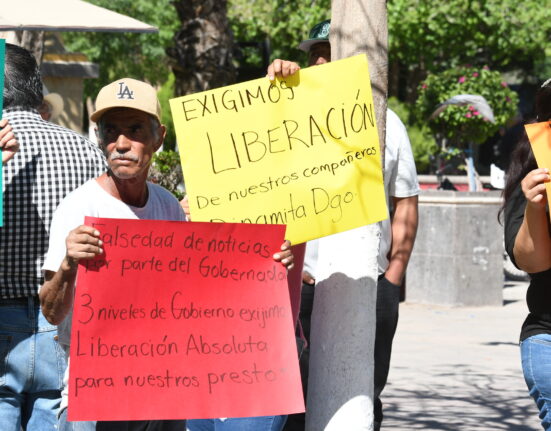 LA
EXIGIMOS
LIBERACIÓN
De nuestros compañeros
Dinamita Dgo.
Falsedad de noticias
por parte del Gobernador
3 niveles de Gobierno exijimos
Liberación Absoluta
para nuestros presto